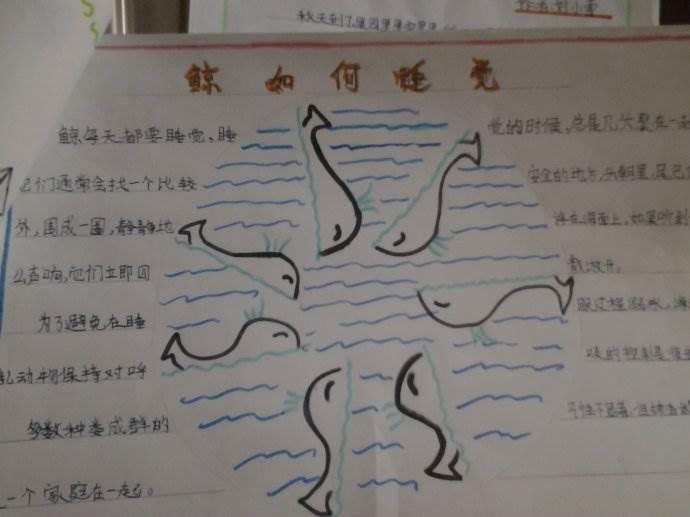 作者:刘小童
秋天到了,果园里
鲸如何睡觉
鲸每天都要睡觉,睡觉的时候,总是几头聚在一起
它们通常会找一个比较安全的地方,头朝里,尾巴
外,围成一圈,静静地浮在海面上,如果听到
么声响,它们立即四散游开。
为了避免在睡眠过程溺水,海
乳动物保持对呼吸的控制是
多数种类成群的
一个家庭在一起。